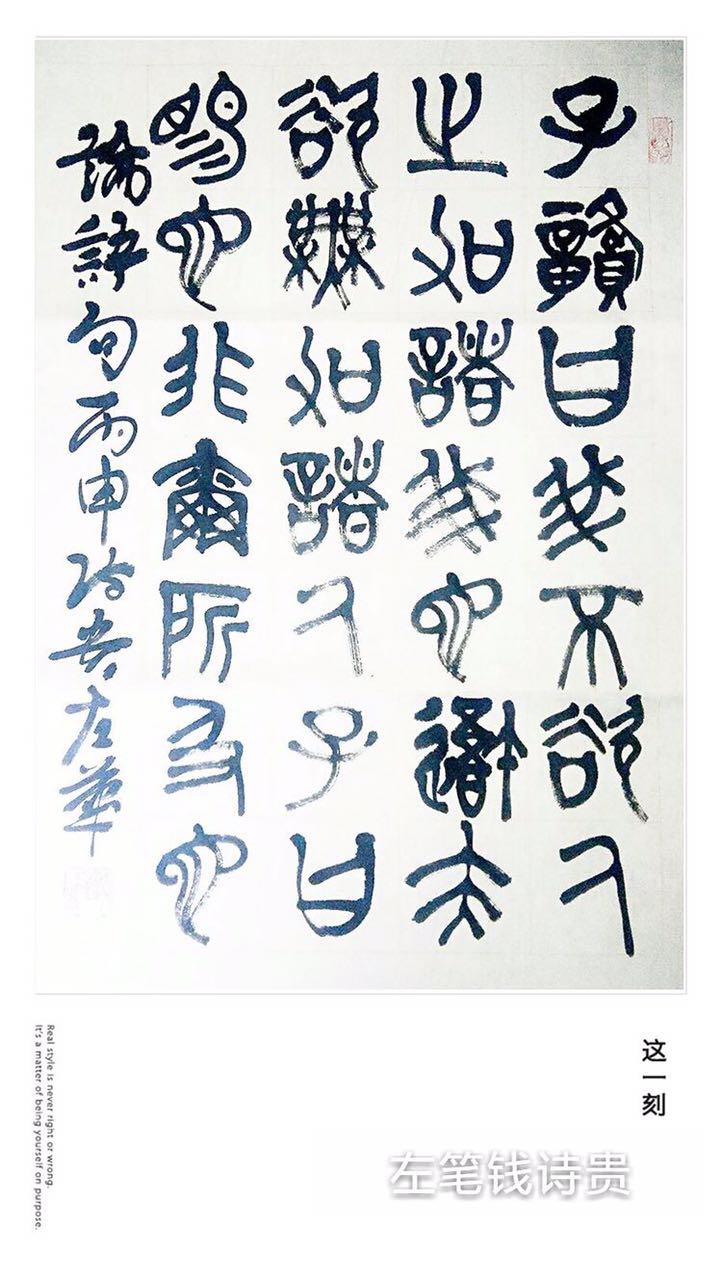 子贛曰我不欲人
之加諸我也吾亦
欲無加諸人子曰
賜也非爾所及也
論語句丙申诗贵左筆
这一刻
左笔钱诗贵
Real style is never right or wrong.
It's a matter of being yourself on purpose.